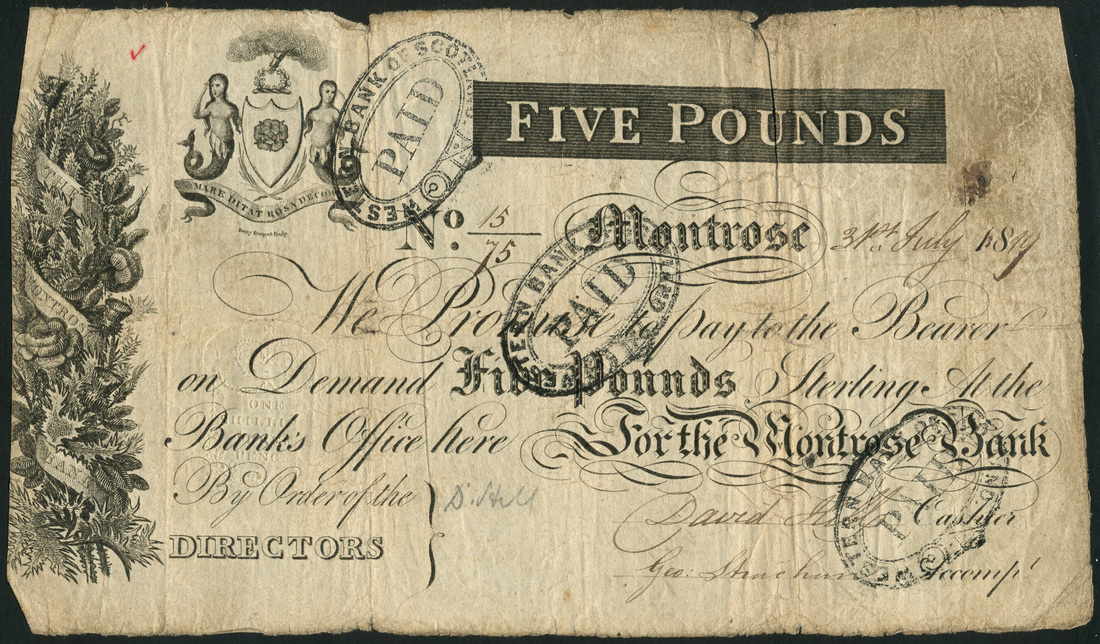 WESTERN BANK OF SCOTLAND
PAID
FIVE POUNDS
MARE DITAT ROSA DECORAT
No. 15/75 Montrose 31st July 1819
We Promise to pay to the Bearer
on Demand Five Pounds Sterling At the
Bank's Office here For the Montrose Bank
By Order of the
DIRECTORS
D. Hill
David Hill Cashier
Geo: Strachan Accompt
ONE
MONTROSE
BANK
WESTERN BANK
PAID
WESTERN BANK
PAID